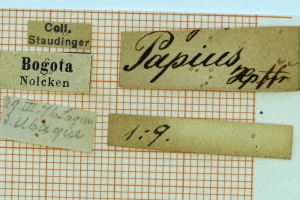 Coll.
Staudinger
Bogota
Nolcken
Ubaque
Papius
Hpffr
1:9.